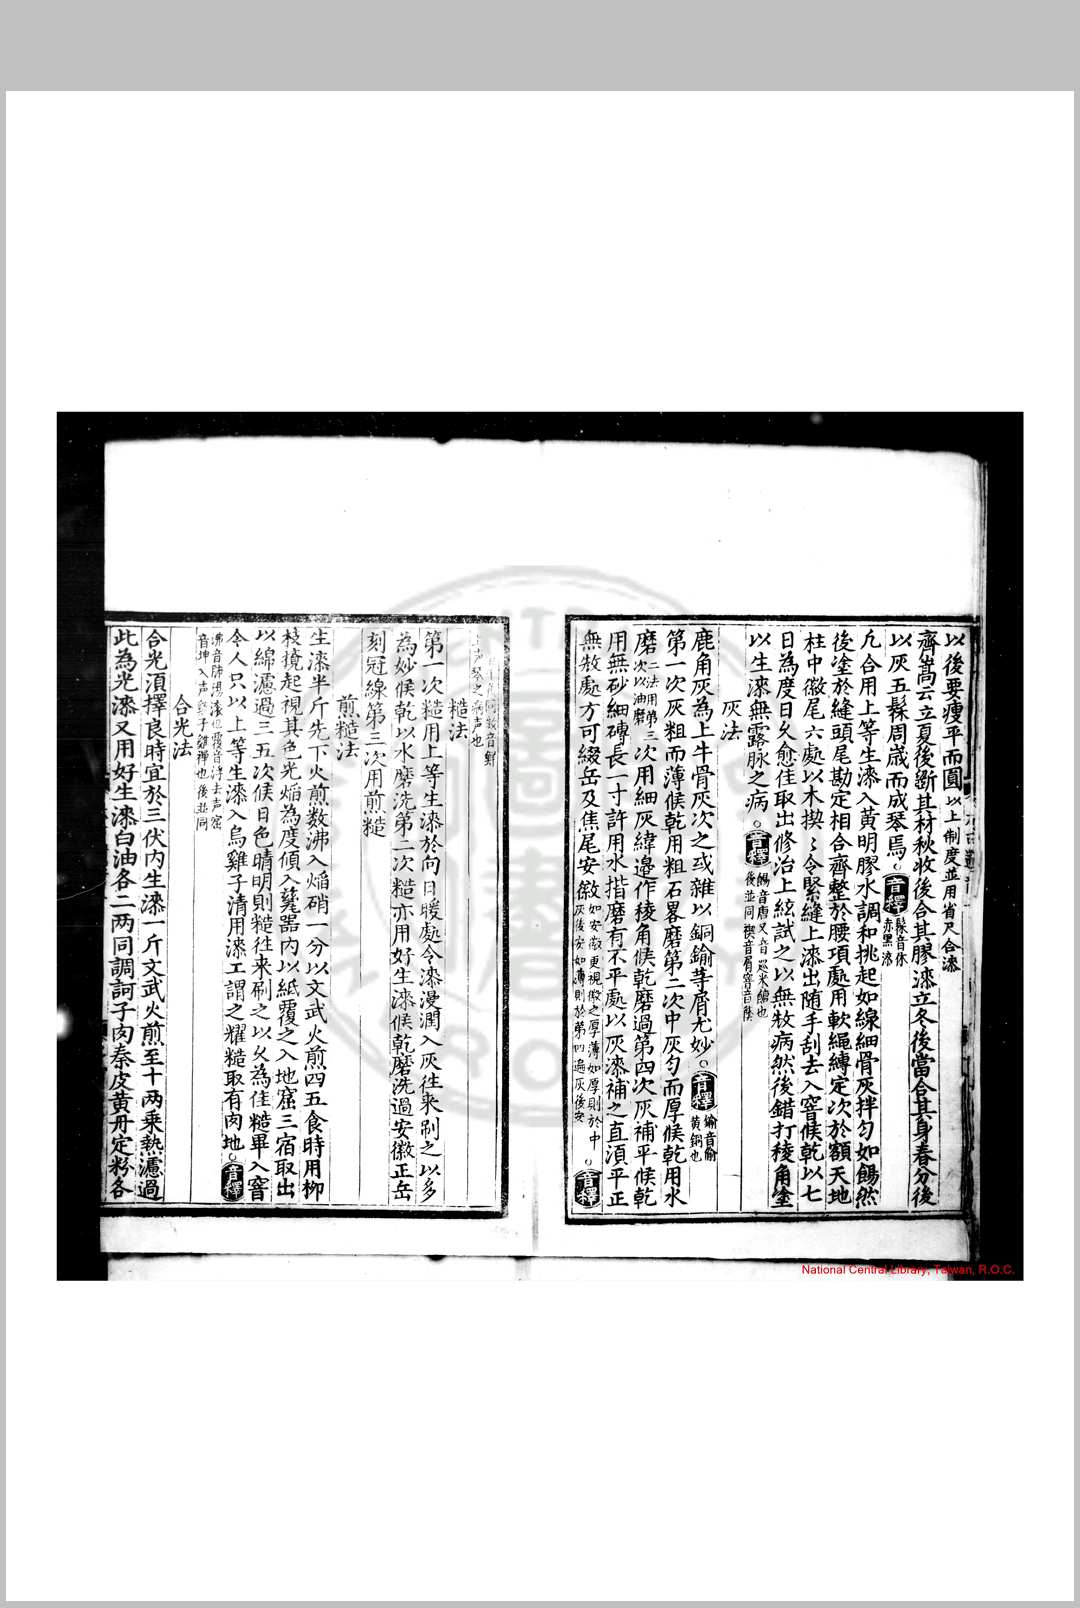 以後要瘦平而圓以上制度並用省尺合漆
齊嵩云立夏後斵其材秋收後合其膠漆立冬後當合其身春分後
以灰五髹周歲而成琴焉○音釋髹音休赤黑漆
凢合用上等生漆入黄明膠水調和挑起如線細骨灰拌匀如餳然
後塗於縫頭尾勘定相合齊整於腰項處用軟繩縛定次於額天地
柱中徽尾六處以木揳〻令緊縫上漆出随手刮去入窨候乾以七
日為度日久愈佳取出修治上絃試之以無㪇病然後錯打稜角塗
以生漆無露脉之病○音釋餳音唐又音
後並同揳音屑窨音蔭
灰法
鹿角灰為上牛骨灰次之或雜以銅鍮等屑尤妙○音釋鍮音偷黄銅也
第一次灰粗而薄候乾用粗石畧磨第二次中灰匀而厚候乾用水
磨二法用第三次以油磨次用細灰緯邉作稜角候乾磨過第四次灰補平候乾
用無砂細磚長一寸許用水揩磨有不平處以灰漆補之直湏平正
無㪇處方可綴岳及焦尾安徽如安徽更視徽之厚薄如厚則於中灰後安如薄則於第四遍灰後安○音釋
琴之病声也
糙法
第一次糙用上等生漆於向日暖處令漆漫潤入灰往来刷之以多
為妙候乾以水磨洗第二次糙亦用好生漆候乾磨洗過安徽正岳
刻冠線第三次用煎糙
煎糙法
生漆半斤先下火煎数沸入焔硝一分以文武火煎四五食時用柳
枝撓起視其色光焔為度傾入甆器内以紙覆之入地窟三宿取出
以綿濾過三五次候日色晴明則糙往来刷之以久為佳糙畢入窨
令人只以上等生漆入烏雞子清用漆工謂之耀糙取有肉地○音釋
沸音肺湯滚也覆音浮去声窟
音坤入声雞子雞禪也後並同
合光法
合光湏擇良時宜於三伏内生漆一斤文武火煎至十两乘熱濾過
此為光漆又用好生漆白油各二两同調訶子肉秦皮黄丹定粉各
National Central Library, Taiwan, R.O.C.